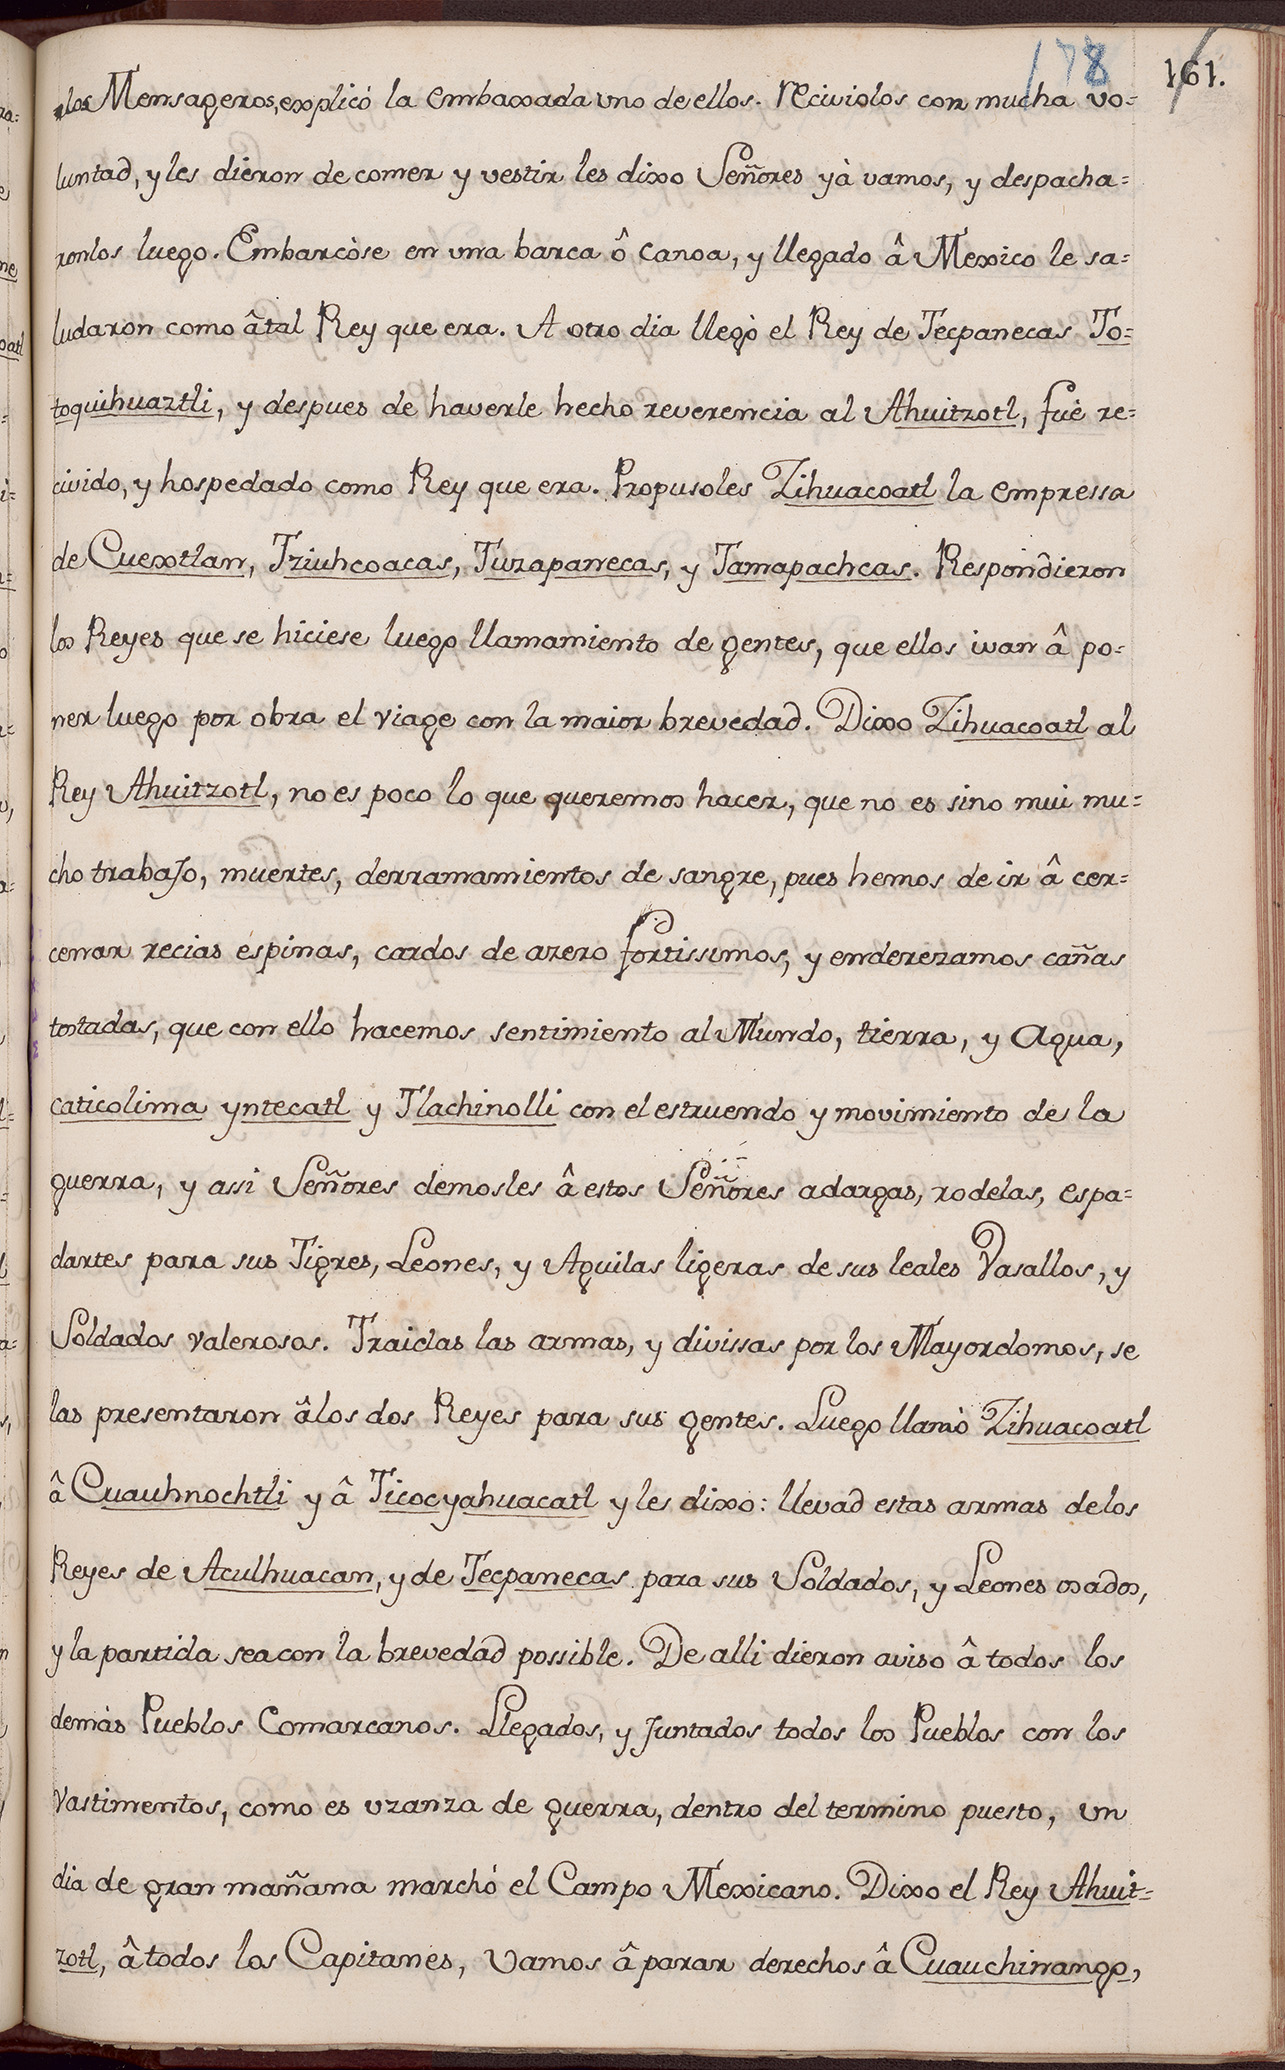 178 161.
los Mensageros, explicó la embaxada uno de ellos. Reciviolos con mucha vo=
luntad, y les dieron de comer y vestir les dixo Señores yà vamos, y despacha=
ronlos luego. Embarcòse en una barca ô Canoa, y llegado â Mexico le sa=
ludaron como âtal Rey que era. A otro dia llegò el Rey de Tecpanecas To=
toquihuaztli, y despues de haverle hecho reverencia al Ahuitzotl, fuè re=
civido, y hospedado como Rey que era. Propusoles Zihuacoatl la empressa
de Cuextlan, Tziuhcoacas, Tuzapanecas, y Tamapachcas. Respondieron
los Reyes que se hiciese luego llamamiento de gentes, que ellos ivan â po=
ner luego por obra el viage con la maior brevedad. Dixo Zihuacoatl al
Rey Ahuitzotl, no es poco lo que queremos hacer, que no es sino mui mu=
cho trabajo, muertes, derramamientos de sangre, pues hemos de ir â cer=
cenar recias espinas, cardos de azero fortissimos, y enderezamos cañas
tostadas, que con ello hacemos sentimiento al Mundo, tierra, y Agua,
caticolima yntecatl y Tlachinolli con el estruendo y movimiento de la
guerra, y assi Señores demosles â estos Señores adargas, rodelas, espa=
dartes para sus Tigres, Leones, y Aguilas ligeras de sus leales Vasallos, y
Soldados valerosos. Traidas las armas, y divissas por los Mayordomos, se
las presentaron âlos dos Reyes para sus gentes. Luego llamò Zihuacoatl
â Cuauhnochtli y â Ticocyahuacatl y les dixo: llevad estas armas delos
Reyes de Aculhuacan, y de Tecpanecas para sus Soldados, y Leones osados,
y la partida sea con la brevedad possible. De alli dieron aviso â todos los
demàs Pueblos Comarcanos. Llegados, y juntados todos los Pueblos con los
vastimentos, como es vzanza de guerra, dentro del termino puesto, un
dia de gran mañana marchó el Campo Mexicano. Dixo el Rey Ahuit=
zotl, â todos los Capitanes, Vamos â parar derechos â Cuauchinango,